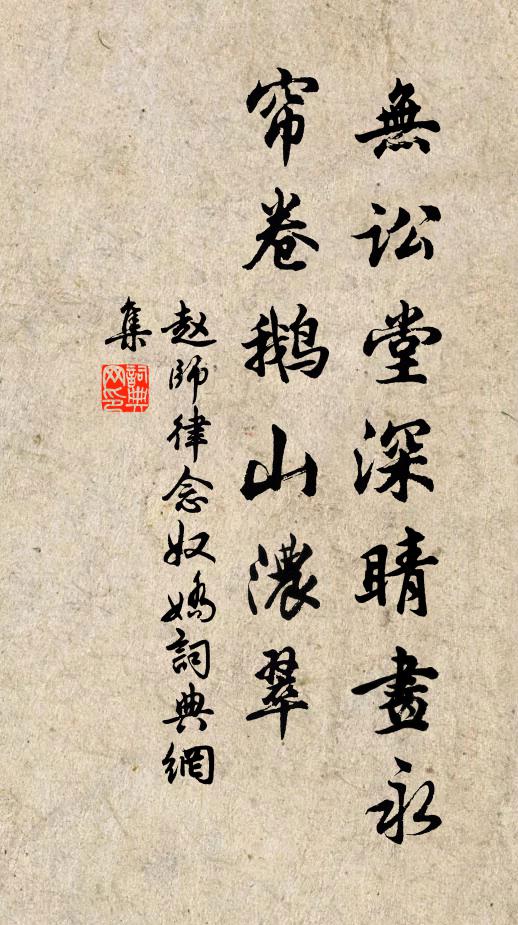 無訟堂深晴晝永
帘卷鹅山濃翠
赵師律念奴嬌詞典網
集
詞典
网印